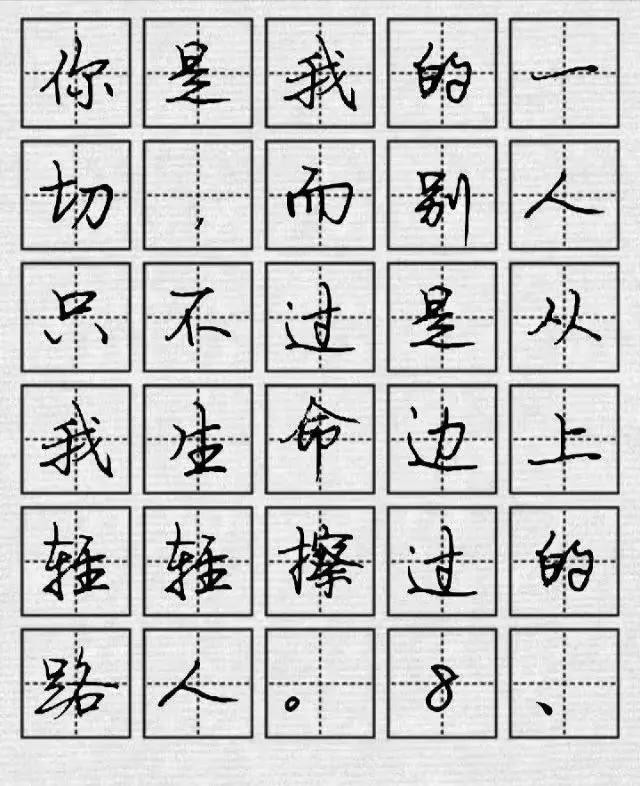 你是我的一
切,而别人
只不过是从
我生命边上
轻轻擦过的
路人。8、